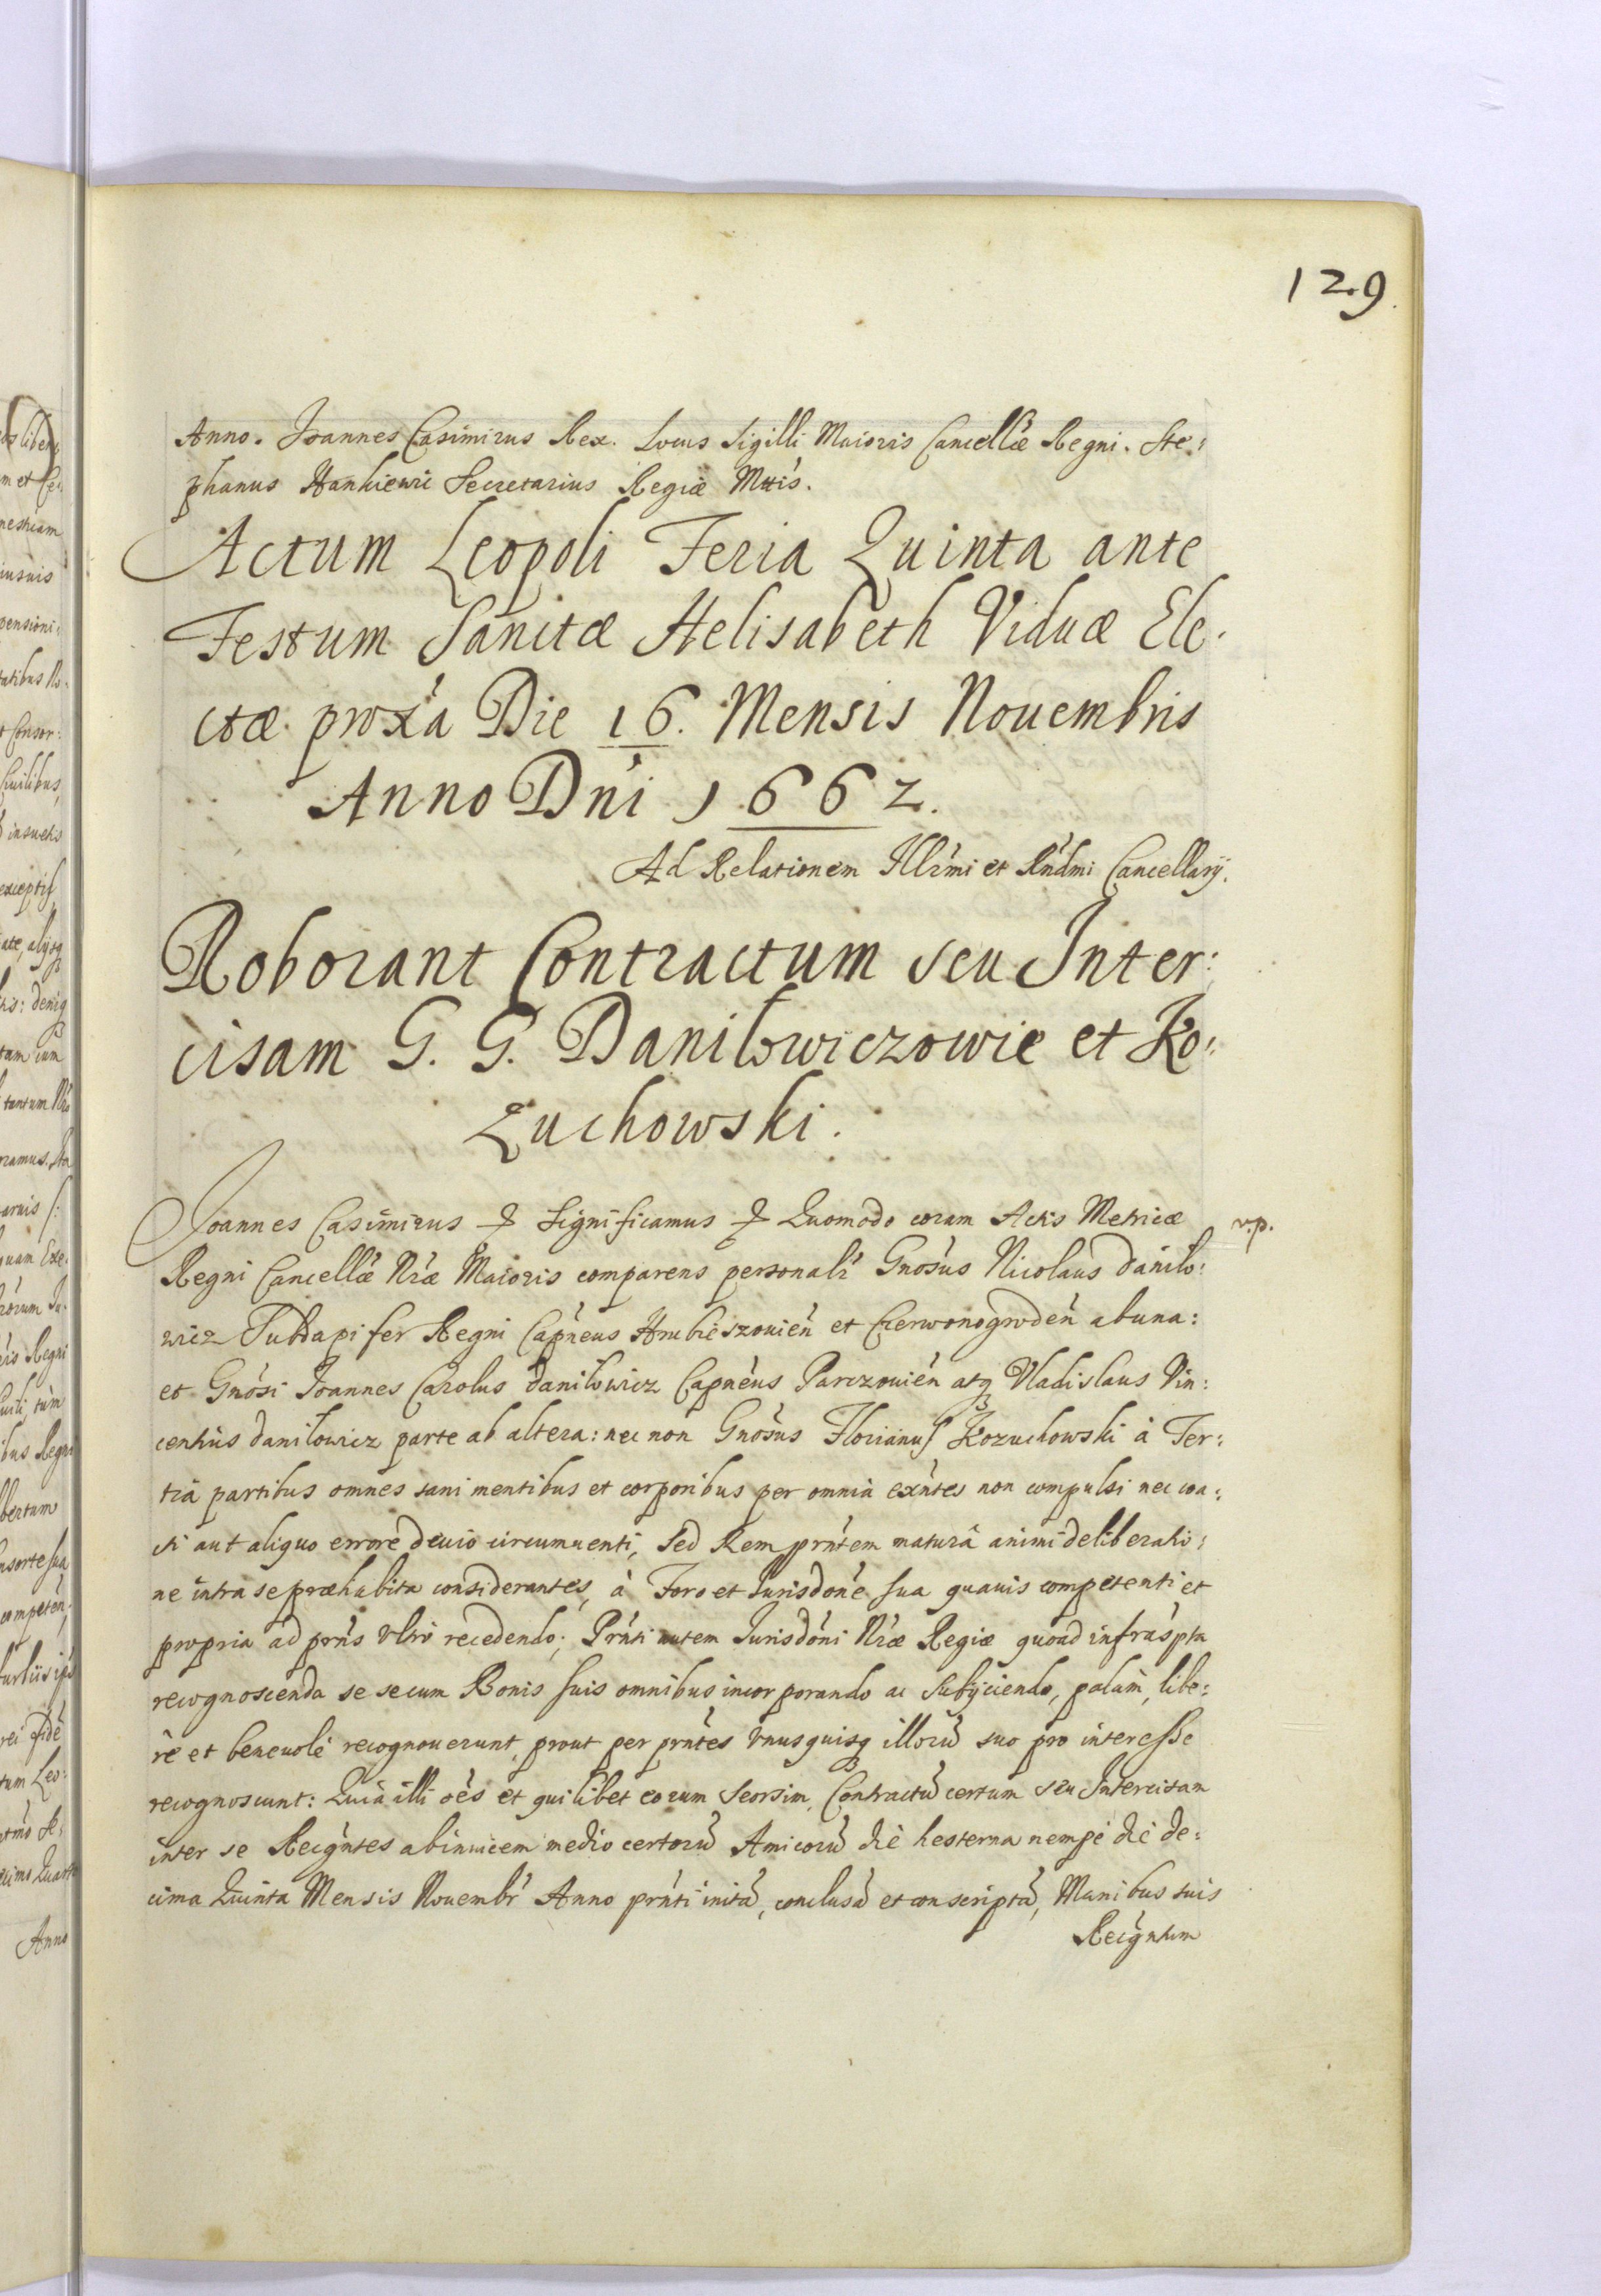 129
Anno. Joannes Casimirus Rex. Locus Sigilli Maioris Cancellae Regni. Ste:
phanus Hankiewic Secretarius Regiae Mttis.
Actum Leopoli Feria Quinta ante
Festum Sanctae Helisabeth Viduae Ele:
ctae proxa Die 16. Mensis Nouembris
Anno Dni 1662.
Ad Relationem Illrmi et Rndmi Cancellarij.
Roborant Contractum seu Inter:
cisam G. G. Daniłowiczowie et Ko:
żuchowski.
Joannes Casimirus Significamus Quomodo coram Actis Metricae
v.p.
Regni Cancellae Nrae Maioris comparens personalr Gnosus Nicolaus Daniło:
wicz Subdapifer Regni Capneus Hrubieszouien et Czerwonogroden ab una:
et Gnosi Joannes Carolus Daniłowicz Capneus Parczouien atq Vladislaus Vin:
centius Daniłowicz parte ab altera: nec non Gnosus Florianus Kożuchowski à Ter:
tia partibus omnes sani mentibus et corporibus per omnia exntes non compulsi nec coa:
cti aut aliquo errore deuio circumuenti, sed Rem prntem maturâ animi deliberatio:
ne intra se praehabita considerantes, à Foro et Jurisdone sua quauis competenti et
propria ad prns vltro recedendo; Prnti autem Jurisdoni Nrae Regiae quoad infraspta
recognoscenda se secum Bonis suis omnibus incorporando ac subijciendo, palàm, libe:
rè et beneuolè recognouerunt, prout per prntes vnusquisq illorũ suo pro interesse
recognoscunt: Quià illi oes et quilibet eorum seorsim, Contractũ certum seu Intercisam
inter se Recgntes abinuicem medio certorũ Amicorũ die hesterna nempè die de:
cima Quinta Mensis Nouembr Anno prnti initã, conclusã et conscriptã, Manibus suis
Recgntium